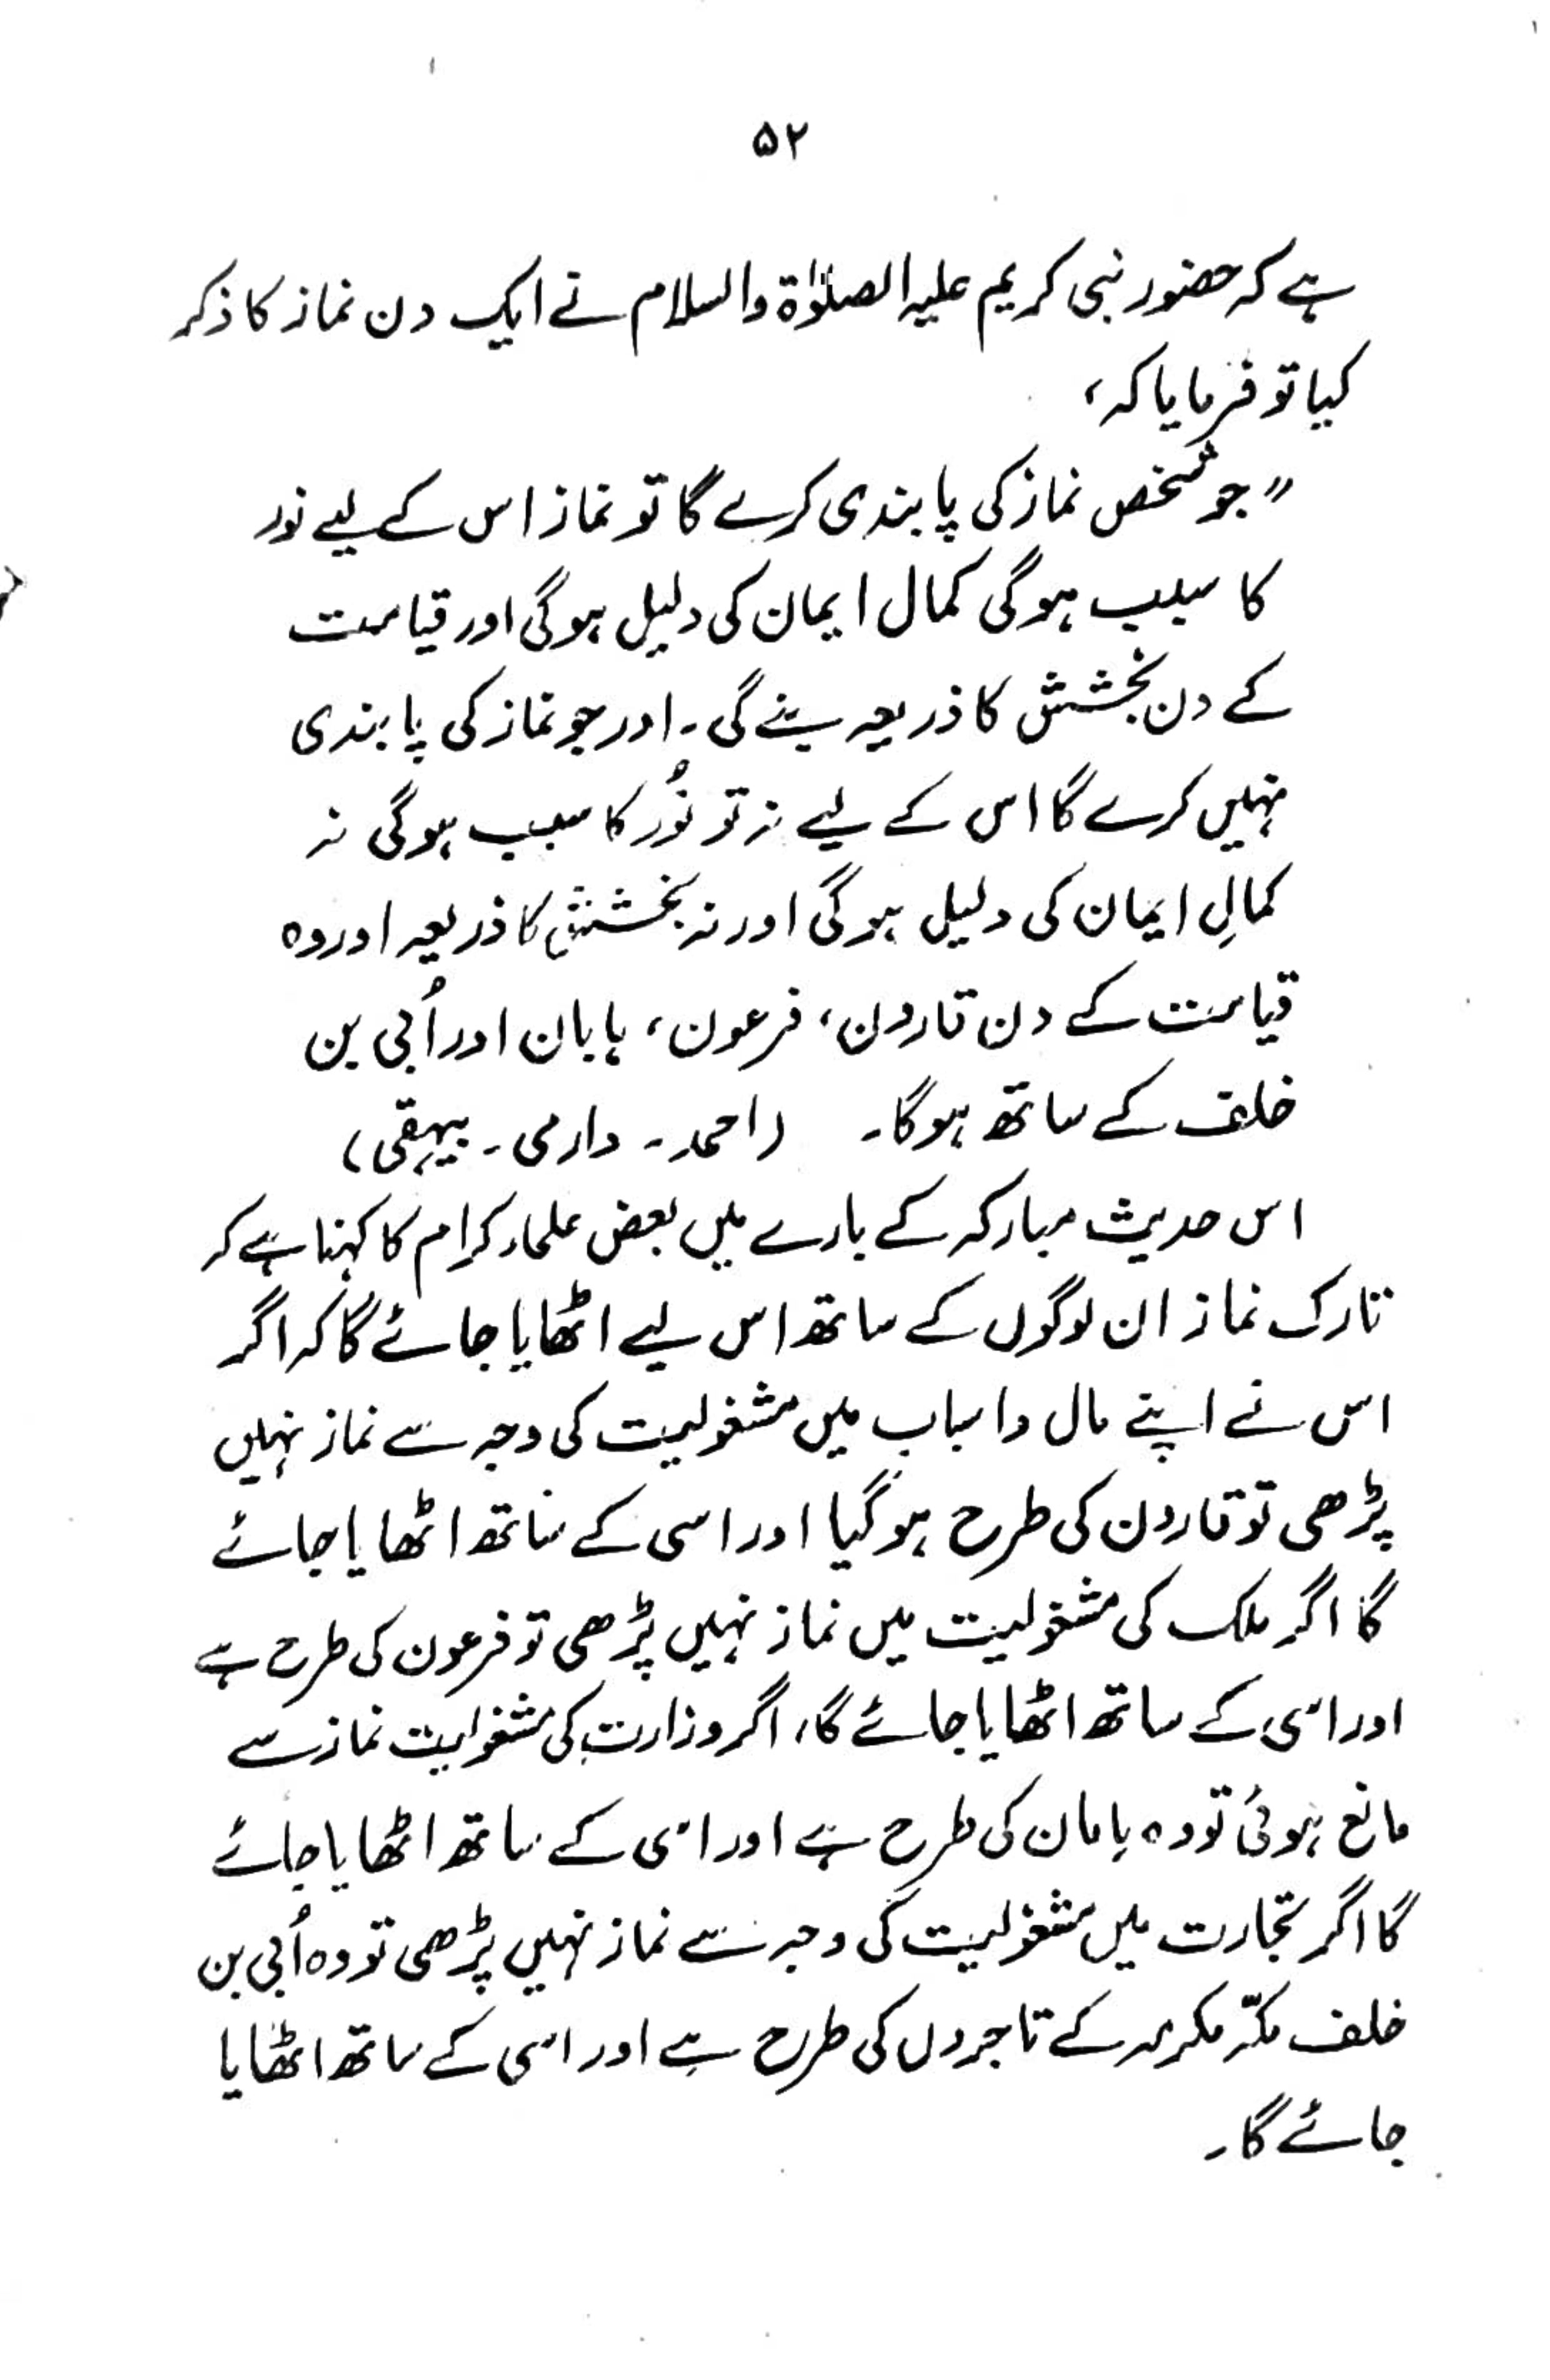 ۵۲
ہے کہ حضور نبی کریم علیہ الصلوٰۃ والسلام نے ایک دن نماز کا ذکر
کیا تو فرمایا کہ،
"جو شخص نماز کی پابندی کرے گا تو نماز اس کے لیے نور
کا سبب ہوگی کمال ایمان کی دلیل ہوگی اور قیامت
کے دن بخشش کا ذریعہ بنے گی۔ اور جو نماز کی پابندی
نہیں کرے گا اس کے لیے نہ تو نُور کا سبب ہوگی نہ
کمالِ ایمان کی دلیل ہوگی اور نہ بخشش کا ذریعہ اور وہ
قیامت کے دن قارون، فرعون، ہامان اور اُبی بن
خلف کے ساتھ ہوگا۔ (احمد۔ دارمی۔ بیہقی)
اس حدیث مبارکہ کے بارے میں بعض علماء کرام کا کہنا ہے کہ
تارک نماز ان لوگوں کے ساتھ اس لیے اٹھایا جائے گا کہ اگر
اس نے اپنے مال و اسباب میں مشغولیت کی وجہ سے نماز نہیں
پڑھی تو قارون کی طرح ہو گیا اور اسی کے ساتھ اٹھایا جائے
گا اگر ملک کی مشغولیت میں نماز نہیں پڑھی تو فرعون کی طرح ہے
اور اسی کے ساتھ اٹھایا جائے گا، اگر وزارت کی مشغولیت نماز سے
مانع ہوئی تو وہ ہامان کی طرح ہے اور اسی کے ساتھ اٹھایا جائے
گا اگر تجارت میں مشغولیت کی وجہ سے نماز نہیں پڑھی تو وہ اُبی بن
خلف مکّہ مکرمہ کے تاجروں کی طرح ہے اور اسی کے ساتھ اٹھایا
جائے گا۔